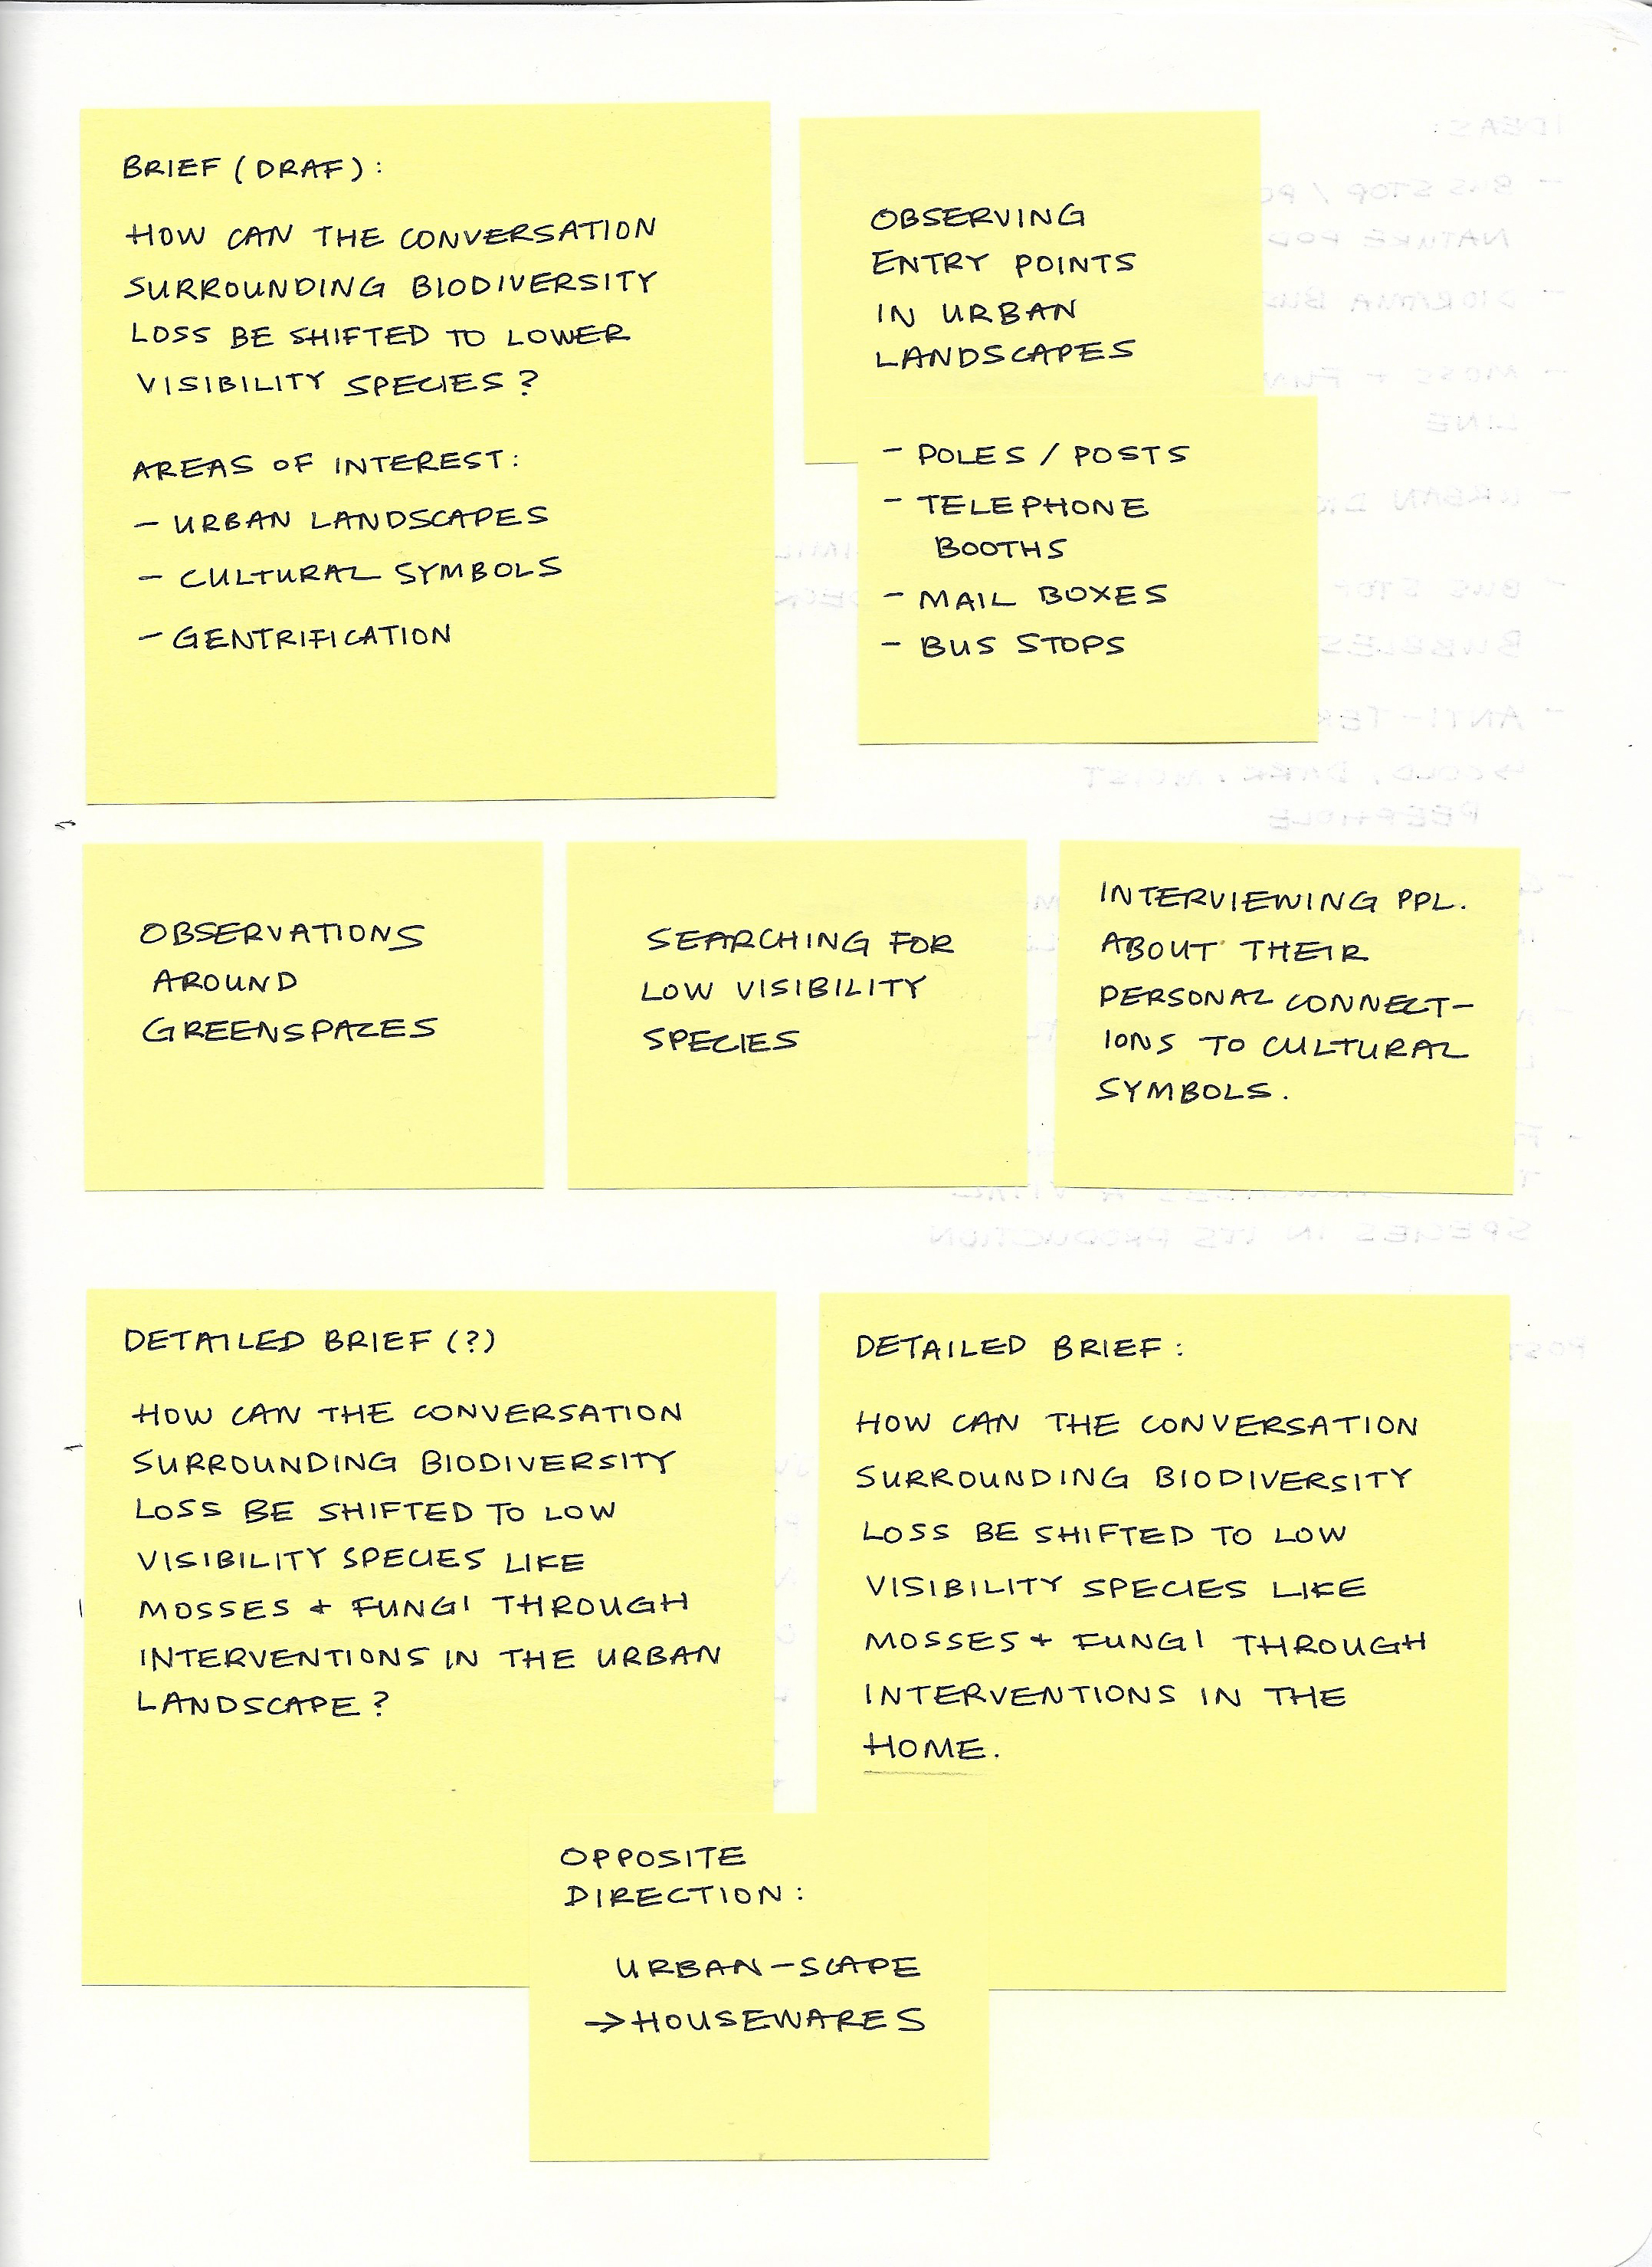 BRIEF (DRAF):
HOW CAN THE CONVERSATION
SURROUNDING BIODIVERSITY
LOSS BE SHIFTED TO LOWER
VISIBILITY SPECIES?
AREAS OF INTEREST:
- URBAN LANDSCAPES
- CULTURAL SYMBOLS
- GENTRIFICATION
OBSERVING
ENTRY POINTS
IN URBAN
LANDSCAPES
- POLES / POSTS
- TELEPHONE
BOOTHS
- MAIL BOXES
- BUS STOPS
OBSERVATIONS
AROUND
GREENSPACES
SEARCHING FOR
LOW VISIBILITY
SPECIES
INTERVIEWING PPL.
ABOUT THEIR
PERSONAL CONNECT-
IONS TO CULTURAL
SYMBOLS.
DETAILED BRIEF (?)
HOW CAN THE CONVERSATION
SURROUNDING BIODIVERSITY
LOSS BE SHIFTED TO LOW
VISIBILITY SPECIES LIKE
MOSSES + FUNGI THROUGH
INTERVENTIONS IN THE URBAN
LANDSCAPE?
DETAILED BRIEF:
HOW CAN THE CONVERSATION
SURROUNDING BIODIVERSITY
LOSS BE SHIFTED TO LOW
VISIBILITY SPECIES LIKE
MOSSES + FUNGI THROUGH
INTERVENTIONS IN THE
HOME.
OPPOSITE
DIRECTION:
URBAN-SCAPE
→ HOUSEWARES